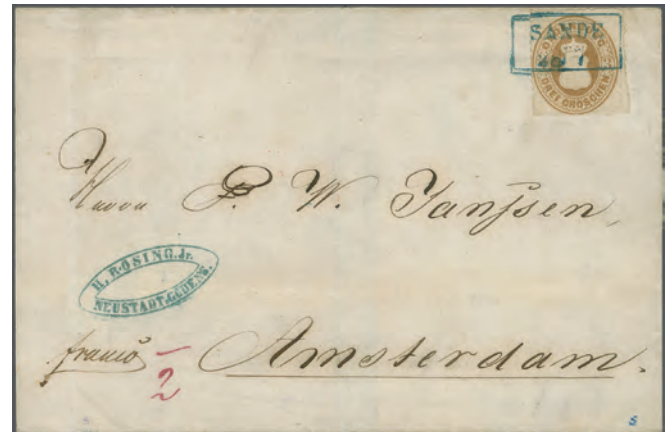 SANDE
DREI GROSCHEN
Herrn P. W. Janssen,
H. ROSING.Jr.
NEUSTADT.GÖDENS.
franco
2
Amsterdam.
s